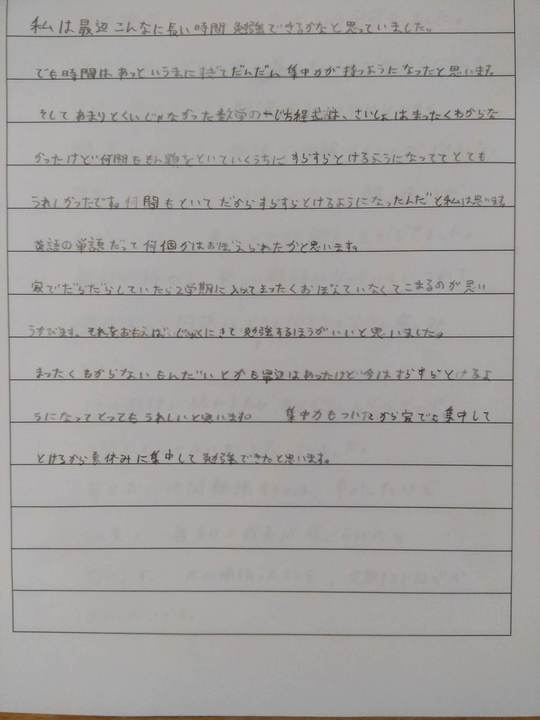 私は最辺こんなに長い時間勉強できるかなと思っていました。
でも時間はあっというまにすぎてだんだん集中力が持つようになったと思います。
そしてあまりとくいじゃなかった数学の 方程式は、さいしょはまったくわからな
かったけど何問ももん題をといていくうちにすらすらとけるようになっててとても
うれしかったです。何問もといてだからすらすらとけるようになったんだと私は思います。
英語の単語だって何個かはおぼえられたかと思います。
家でだらだらしていたら2学期に入ってまったくおぼえていなくてこまるのが思い
うかびます。それをおもえば、じゅくにきて勉強するほうがいいと思いました。
まったくわからないもんだいとかも最辺はあったけど今はすらすらとけるよ
うになってとってもうれしいと思います。 集中力もついたから家でも集中して
とけるから夏休みに集中して勉強できたと思います。